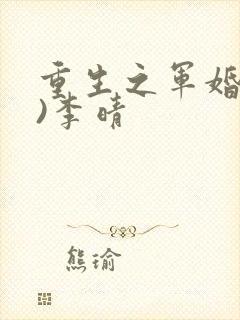 重生之军婚
)李晴
熊瑜